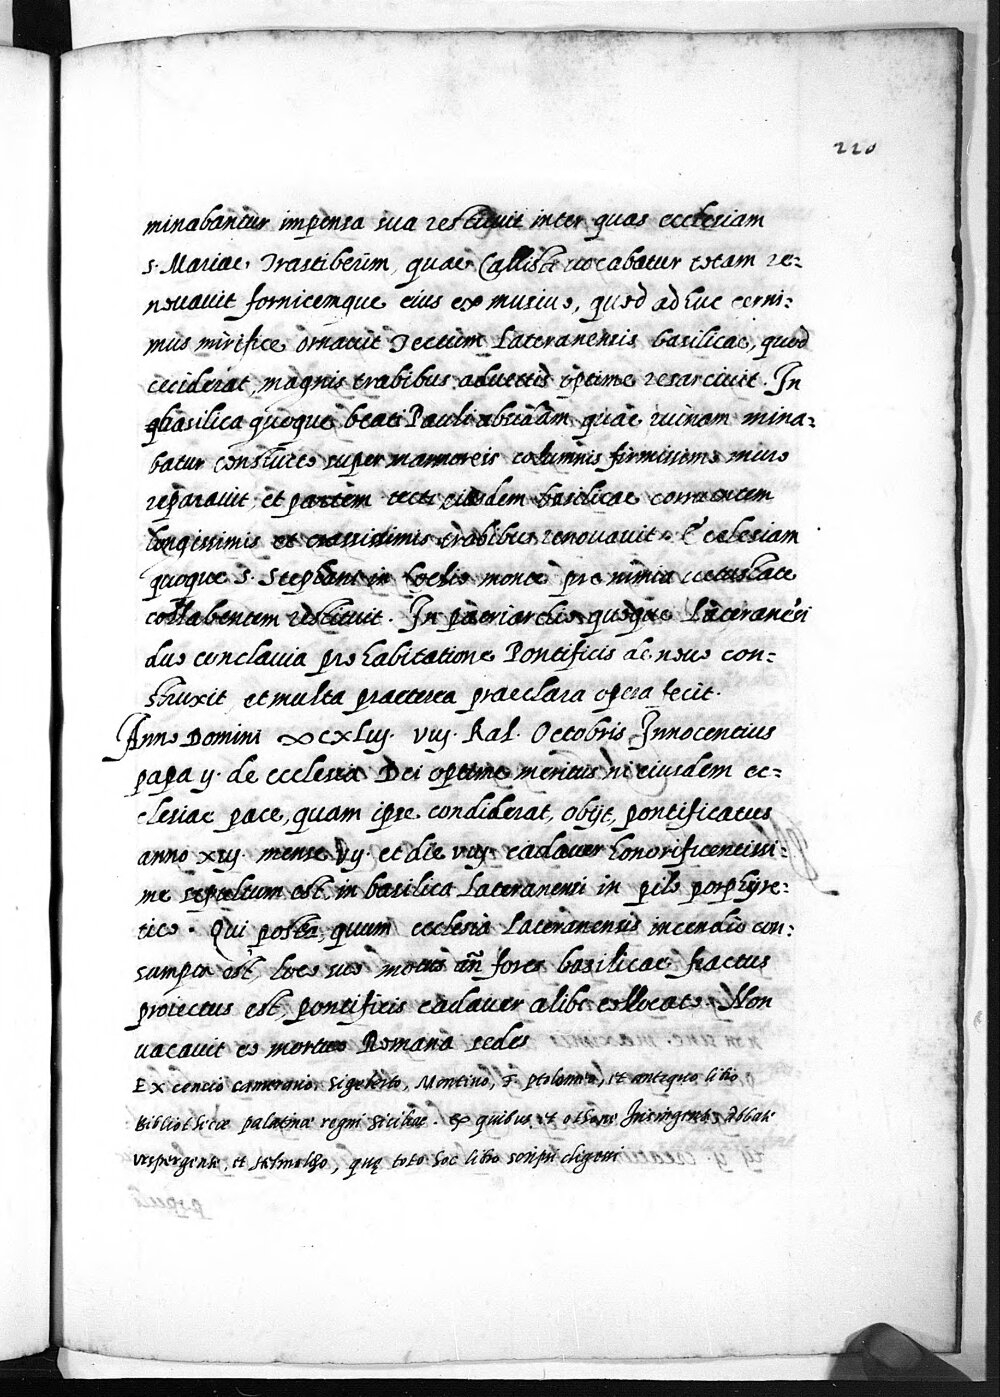 220
minabantur impensa sua restituit inter quas ecclesiam
S. Mariae Trastiberim, quae Callisti vocabatur totam re-
novavit fornicemque eius ex musivo, quod adhuc cerni-
mus mirifice ornavit Tectum Lateranensis basilicae, quod
ceciderat, magnis trabibus advectis optime resarcivit. In
basilica quoque beati Pauli absidam quae ruinam mina-
batur constructo super marmoreis columnis firmissimo muro
reparavit, et partem tecti eiusdem basilicae corruentem
longissimis et crassissimis trabibus renovavit. Ecclesiam
quoque S. Stephani in Coelio monte prae nimia vetustate
collabentem restituit. In patriarchio quoque Lateranensi
duo conclavia pro habitatione Pontificis de novo con-
struxit et multa praeterea praeclara opera fecit.
Anno Domini ∞CXLiij. viij. Kal. Octobris Innocentius
papa ij. de ecclesia Dei optime meritus in eiusdem ec-
clesiae pace, quam ipse condiderat, obijt, pontificatus
anno xiij. mense vij. et die viij. cadaver honorificentissi-
me sepultum est in basilica Lateranensi in pilo porphyre-
tico. Qui postea, quum ecclesia Lateranensis incendio con-
sumpta est, loco suo motus añ fores basilicae fractus
proiectus est, pontificis cadaver alibi collocato. Non
vacavit eo mortuo Romana sedes
Ex cencio camerario, Sigeberto, Montino, F. ptolomeo, et antiquo libro
Bibliothecae palatinae regni Siciliae. ex quibus et othone frisingensi, Abbate
uspergense, et Helmoldo, quę toto hoc libro scripsi elegi